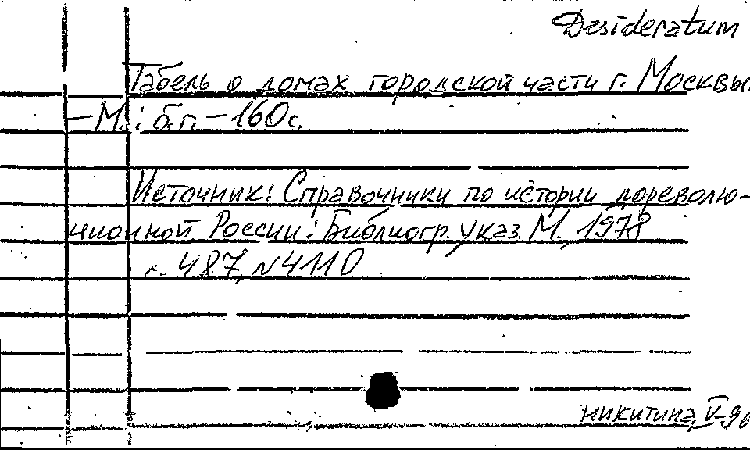 Desideratum
Табель о домах городской части г. Москвы.
— М.: б.г. — 160с.
Источник: Справочники по истории дореволю-
ционной России: Библиогр. указ. М. 1978
с. 487, N4110
Никитина, V-96